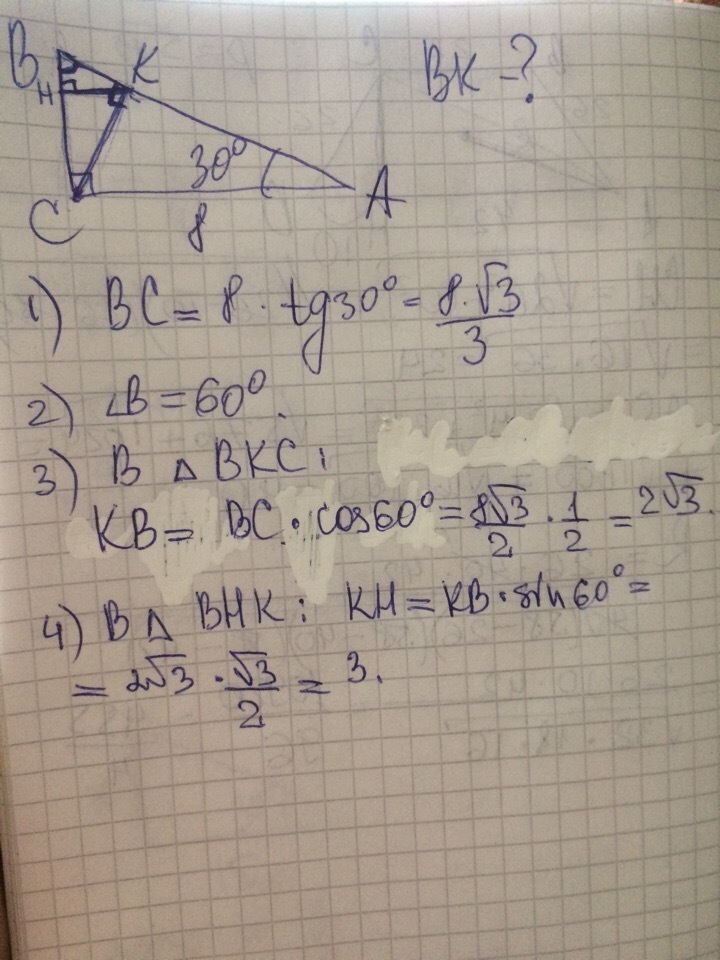 B
K
H
BK - ?
30°
C
8
A
1) BC = 8 · tg30° = 8·√3/3
2) ∠B = 60°.
3) В △ BKC:
KB = BC · cos60° = 8√3/2 · 1/2 = 2√3.
4) В △ BHK: KH = KB · sin60° =
= 2√3 · √3/2 = 3.